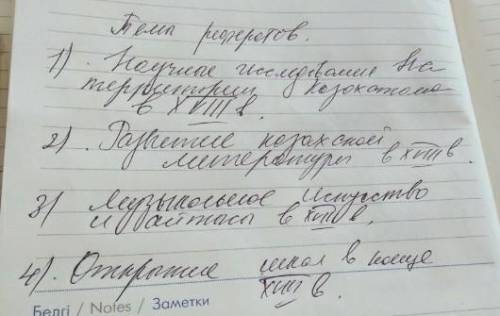 Тема рефератов.
1) Научные исследования на
территории Казахстана
в XVIII в.
2). Развитие казахской
литературы в XVIII в.
3) Музыкальное искусство
и айтысы в XVIII в.
4). Открытие школ в конце
XVIII в.
Белгі / Notes / Заметки